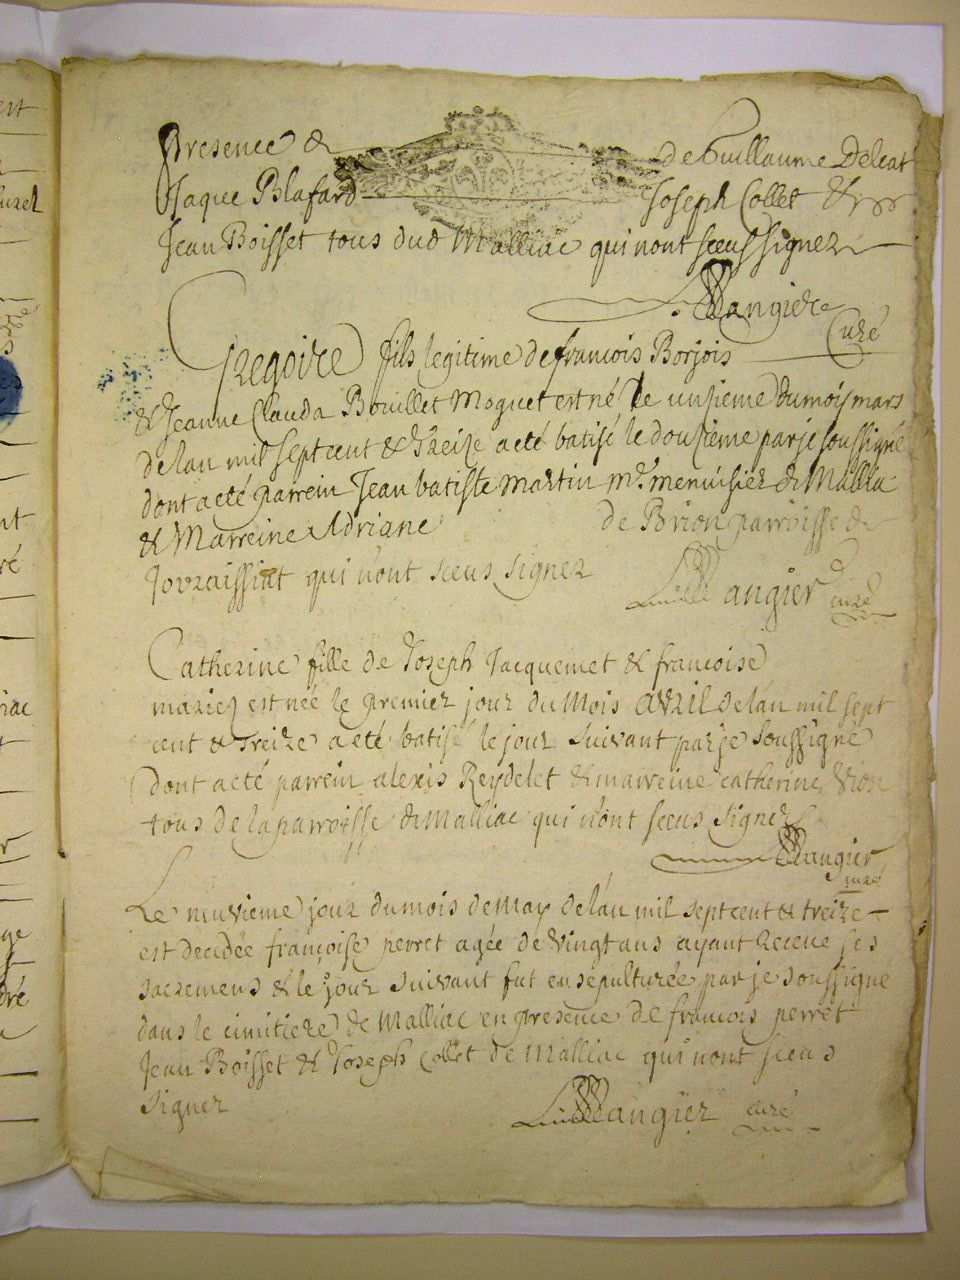 Presence & de Guillaume Deleat
Jaque Blafard Joseph Collet &
Jean Boisset tous dud Malliac qui nont sceus signer
Mangier
Curé
Gregoire fils legitime de francois Borjois
& Jeanne Clauda Bouillet Moguet est né le unsieme du mois mars
de lan mil sept cent & treize a eté batisé le dousieme par je soussigné
dont a eté parrein Jean batiste martin mr. menuisier de Mallia
& Marreine Adriane de Brion parroisse de
qui nont sceus signer
Mangier curé
Catherine fille de Joseph Jacquemet & francoise
est née le premier jour du Mois avril de lan mil sept
cent & treize a eté batisé le jour suivant par je soussigné
dont a eté parrein alexis Reydelet & marreine catherine Vion
tous de la parroisse de Malliac qui nont sceus signer
Mangier
curé
Le neuvieme jour du mois de may de lan mil sept cent & treize
est decidée francoise perret agée de vingt ans ayant Receue ses
sacremens & le jour suivant fut ensepulturée par je soussigné
dans le cimitiere de Malliac en presence de francois perret
Jean Boisset & Joseph Collet de Malliac qui nont sceus
signer
Mangier curé